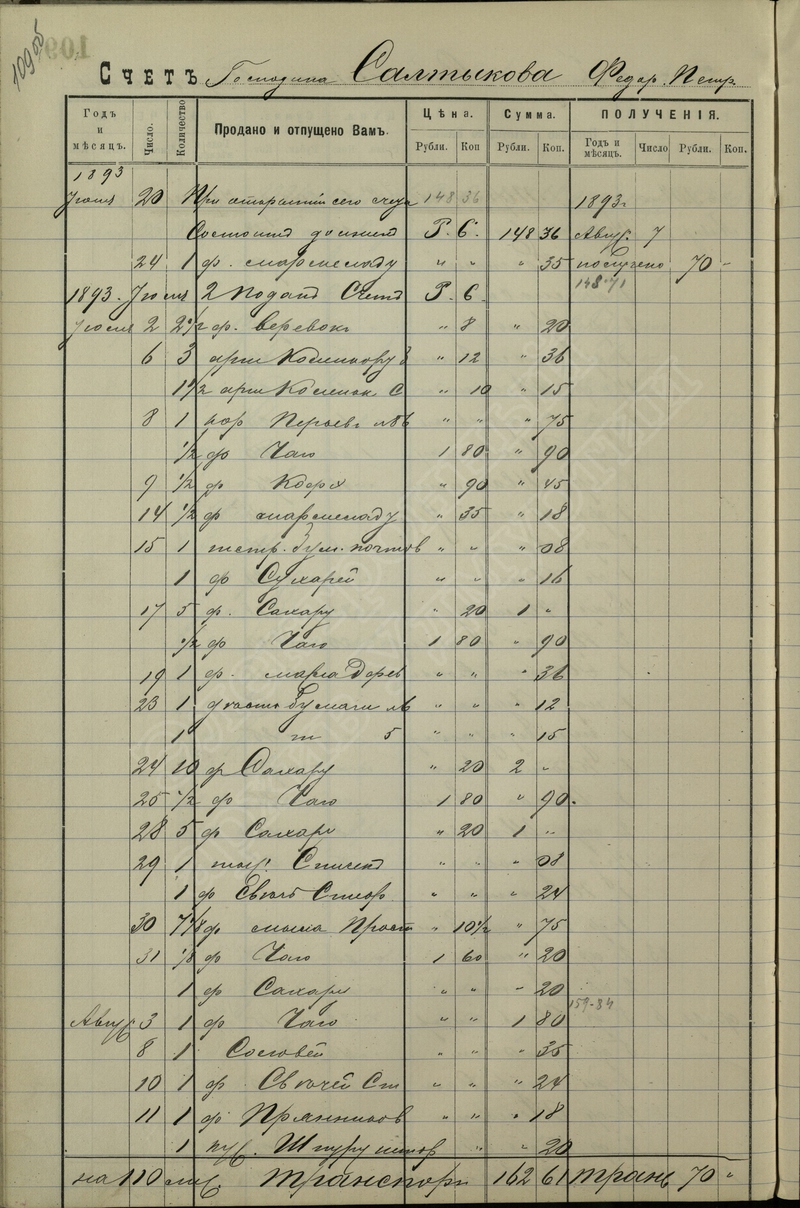 109 об
СЧЕТЪ Господина Салтыкова Федор. Петр.
Годъ и мѣсяцъ. Число. Количество Продано и отпущено Вамъ. Цѣна. Рубли. Коп Сумма. Рубли. Коп. ПОЛУЧЕНІЯ. Годъ и мѣсяцъ. Число Рубли. Коп.
1893
20 При сего счета 148 36 1893 г
Состоит Р. С. 148 36 Авгус. 7
24 1 ф. мармеладу " " " 35 получено 70 -
148.71
1893. Июля 2 Подано Счет Р. С.
Июля 2 2 1/2 ф. Веревок " 8 " 20
6 3 арш Коленкору " 12 " 36
1 1/2 арш Коленк С " 10 " 15
8 1 кор Перьев " " " 75
1/2 ф Чаю 1 80 " 90
9 1/2 ф Кофѣ " 90 " 45
14 1/2 ф мармеладу " 35 " 18
15 1 тетр. бум. почтов " " " 08
1 ф Сухарей " " " 16
17 5 ф. Сахару " 20 1 "
1/2 ф Чаю 1 80 " 90
19 1 ф. масла дерев " " " 36
23 1 бумаги " " " 12
1 5 " " " 15
24 10 ф Сахару " 20 2 "
25 1/2 ф Чаю 1 80 " 90
28 5 ф Сахару " 20 1 "
29 1 Спичек " " " 08
1 ф Свѣчь Стеар " " " 24
30 7 1/8 ф мыла Прост " 10 1/2 " 75
31 1/8 ф Чаю 1 60 " 20
1 ф Сахару " " " 20
159-84
Авгус 3 1 ф Чаю " " 1 80
8 1 " " " 35
10 1 ф Свѣчей Ст " " " 24
11 1 ф Пряников " " " 18
1 " " 20
на 110 лис. транспорт 162 61 транс 70 "